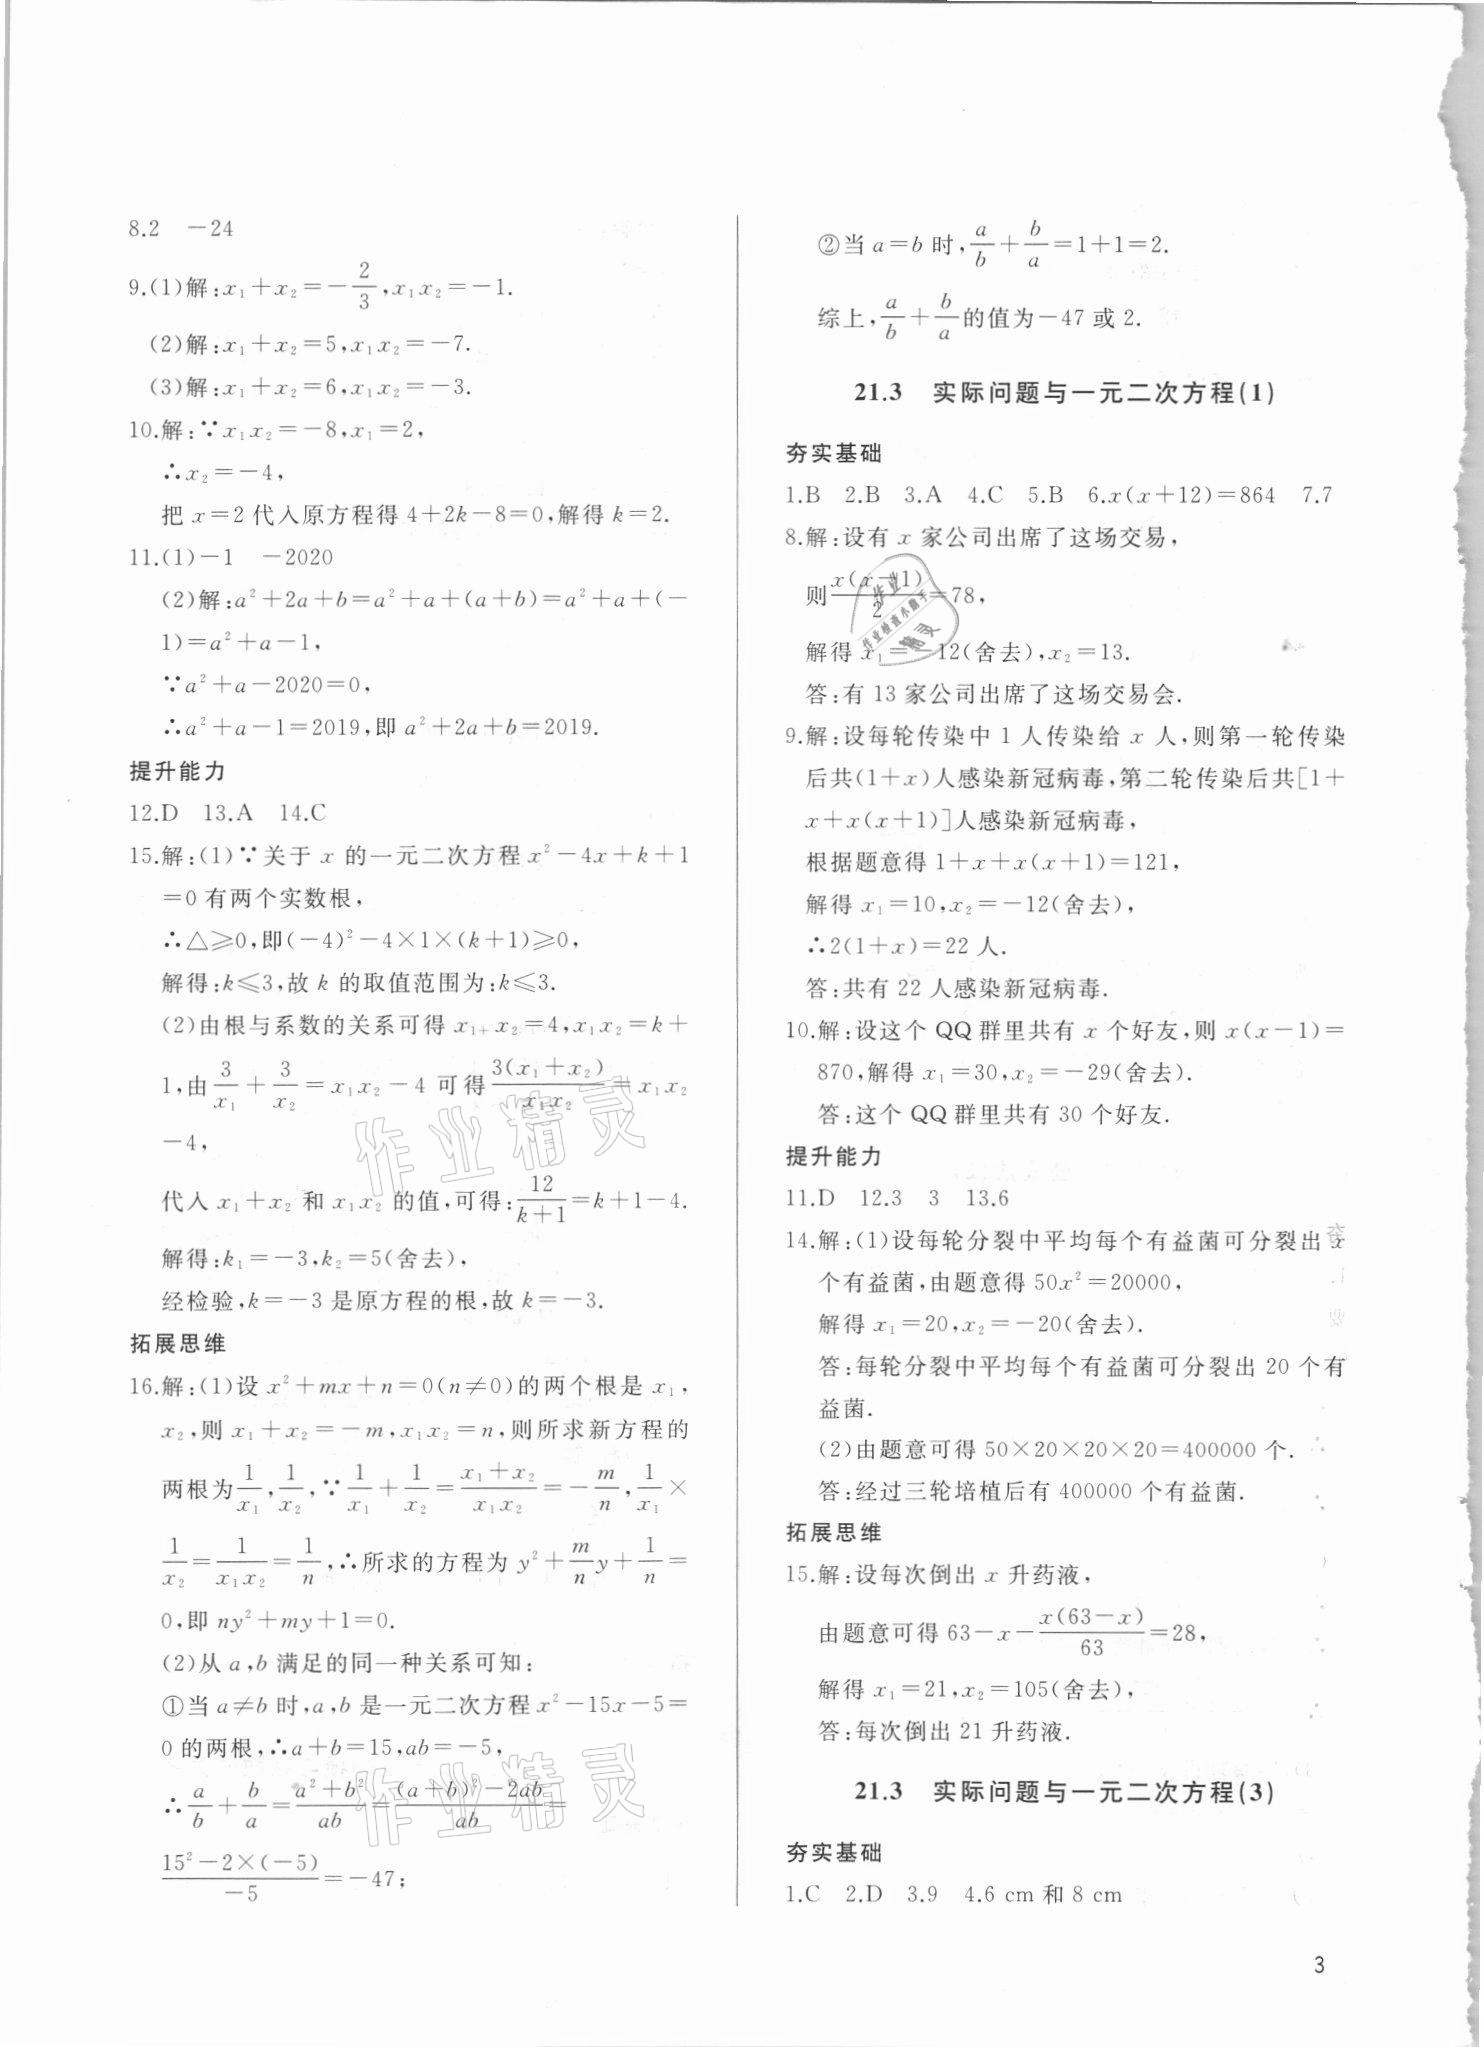 8.2　-24
9.(1)解:x₁+x₂=-2/3,x₁x₂=-1.
(2)解:x₁+x₂=5,x₁x₂=-7.
(3)解:x₁+x₂=6,x₁x₂=-3.
10.解:∵x₁x₂=-8,x₁=2,
∴x₂=-4,
把 x=2 代入原方程得 4+2k-8=0,解得 k=2.
11.(1)-1　-2020
(2)解:a²+2a+b=a²+a+(a+b)=a²+a+(-
1)=a²+a-1,
∵a²+a-2020=0,
∴a²+a-1=2019,即 a²+2a+b=2019.
提升能力
12.D　13.A　14.C
15.解:(1)∵关于 x 的一元二次方程 x²-4x+k+1
=0 有两个实数根,
∴△≥0,即(-4)²-4×1×(k+1)≥0,
解得:k≤3,故 k 的取值范围为:k≤3.
(2)由根与系数的关系可得 x₁₊x₂=4,x₁x₂=k+
1,由 3/x₁+3/x₂=x₁x₂-4 可得 3(x₁+x₂)/x₁x₂=x₁x₂
-4,
代入 x₁+x₂ 和 x₁x₂ 的值,可得:12/(k+1)=k+1-4.
解得:k₁=-3,k₂=5(舍去),
经检验,k=-3 是原方程的根,故 k=-3.
拓展思维
16.解:(1)设 x²+mx+n=0(n≠0)的两个根是 x₁,
x₂,则 x₁+x₂=-m,x₁x₂=n,则所求新方程的
两根为1/x₁,1/x₂,∵1/x₁+1/x₂=(x₁+x₂)/x₁x₂=-m/n,1/x₁×
1/x₂=1/x₁x₂=1/n,∴所求的方程为 y²+m/n y+1/n=
0,即 ny²+my+1=0.
(2)从 a,b 满足的同一种关系可知:
①当 a≠b 时,a,b 是一元二次方程 x²-15x-5=
0 的两根,∴a+b=15,ab=-5,
∴a/b+b/a=(a²+b²)/ab=((a+b)²-2ab)/ab=
(15²-2×(-5))/-5=-47;
②当 a=b 时,a/b+b/a=1+1=2.
综上,a/b+b/a的值为-47 或 2.
21.3　实际问题与一元二次方程(1)
夯实基础
1.B　2.B　3.A　4.C　5.B　6.x(x+12)=864　7.7
8.解:设有 x 家公司出席了这场交易,
则x(x-1)/2=78,
解得 x₁=-12(舍去),x₂=13.
答:有 13 家公司出席了这场交易会.
9.解:设每轮传染中 1 人传染给 x 人,则第一轮传染
后共(1+x)人感染新冠病毒,第二轮传染后共[1+
x+x(x+1)]人感染新冠病毒,
根据题意得 1+x+x(x+1)=121,
解得 x₁=10,x₂=-12(舍去),
∴2(1+x)=22 人.
答:共有 22 人感染新冠病毒.
10.解:设这个 QQ 群里共有 x 个好友,则 x(x-1)=
870,解得 x₁=30,x₂=-29(舍去).
答:这个 QQ 群里共有 30 个好友.
提升能力
11.D　12.3　3　13.6
14.解:(1)设每轮分裂中平均每个有益菌可分裂出 x
个有益菌,由题意得 50x²=20000,
解得 x₁=20,x₂=-20(舍去).
答:每轮分裂中平均每个有益菌可分裂出 20 个有
益菌.
(2)由题意可得 50×20×20×20=400000 个.
答:经过三轮培植后有 400000 个有益菌.
拓展思维
15.解:设每次倒出 x 升药液,
由题意可得 63-x-x(63-x)/63=28,
解得 x₁=21,x₂=105(舍去),
答:每次倒出 21 升药液.
21.3　实际问题与一元二次方程(3)
夯实基础
1.C　2.D　3.9　4.6 cm 和 8 cm
3
作业精灵
作业精灵
作业
作业检查小助手
精灵